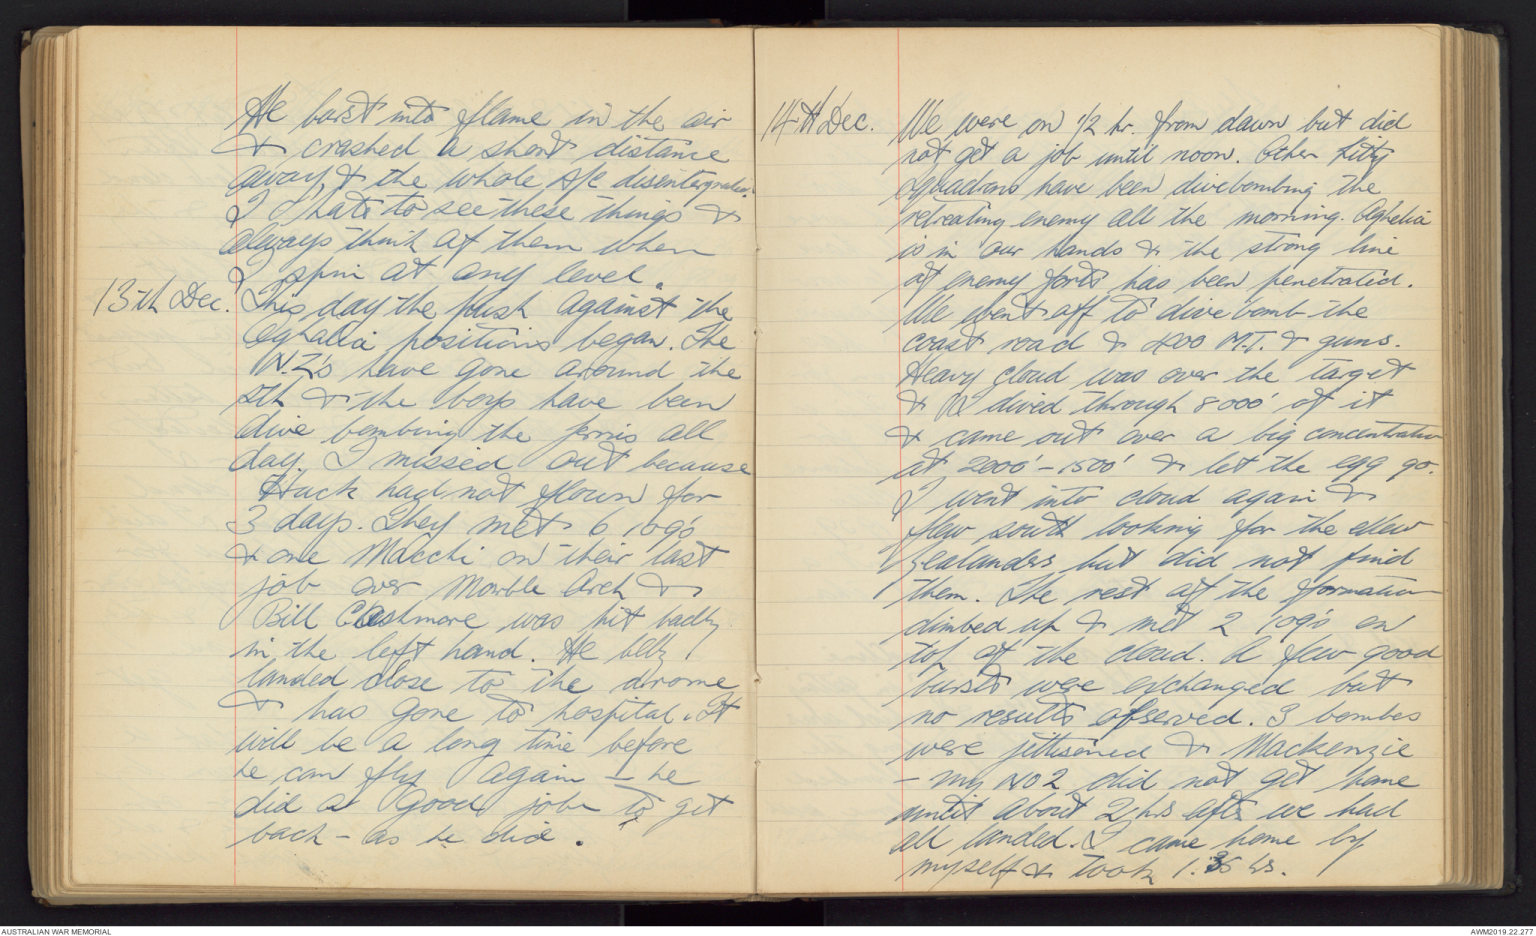 He burst into flame in the air
& crashed a short distance
away & the whole A/C disentergrated.
I hate to see these things &
always think of them when
I spin at any level.
13th Dec. This day the push against the
Aghalia positions began. The
N.Z's have gone around the
Sth & the boys have been
dive bombing the Jerries all
day. I missed out because
Huck had not flown for
3 days. They met 6 109s
& one Macchi on their last
job over Marble Arch &
Bill Cashmore was hit badly
in the left hand. He belly
landed close to the drome
& has gone to hospital. It
will be a long time before
he can fly again - he
did a good job to get
back - as he did.
14th Dec. We were on 1/2 hr. from dawn but did
not get a job until noon. Other Kitty
squadrons have been divebombing the
retreating enemy all the morning. Aghelia
is in our hands & the strong line
of enemy forts has been penetrated.
We went off to dive bomb the
coast road & 400 M.T. & guns.
Heavy cloud was over the target
& I dived through 8000' of it
& came out over a big concentration
at 2000' - 1500' & let the egg go.
I went into cloud again &
flew south looking for the New
Zealanders but did not find
them. The rest of the formation
climbed up & met 2 109s on
top of the cloud. A few good
bursts were exchanged but
no results observed. 3 bombs
were jettisoned & Mackenzie
- my NO 2 did not get home
until about 2 hrs after we had
all landed. I came home by
myself & took 1.35 hrs.
AUSTRALIAN WAR MEMORIAL
AWM2019.22.277